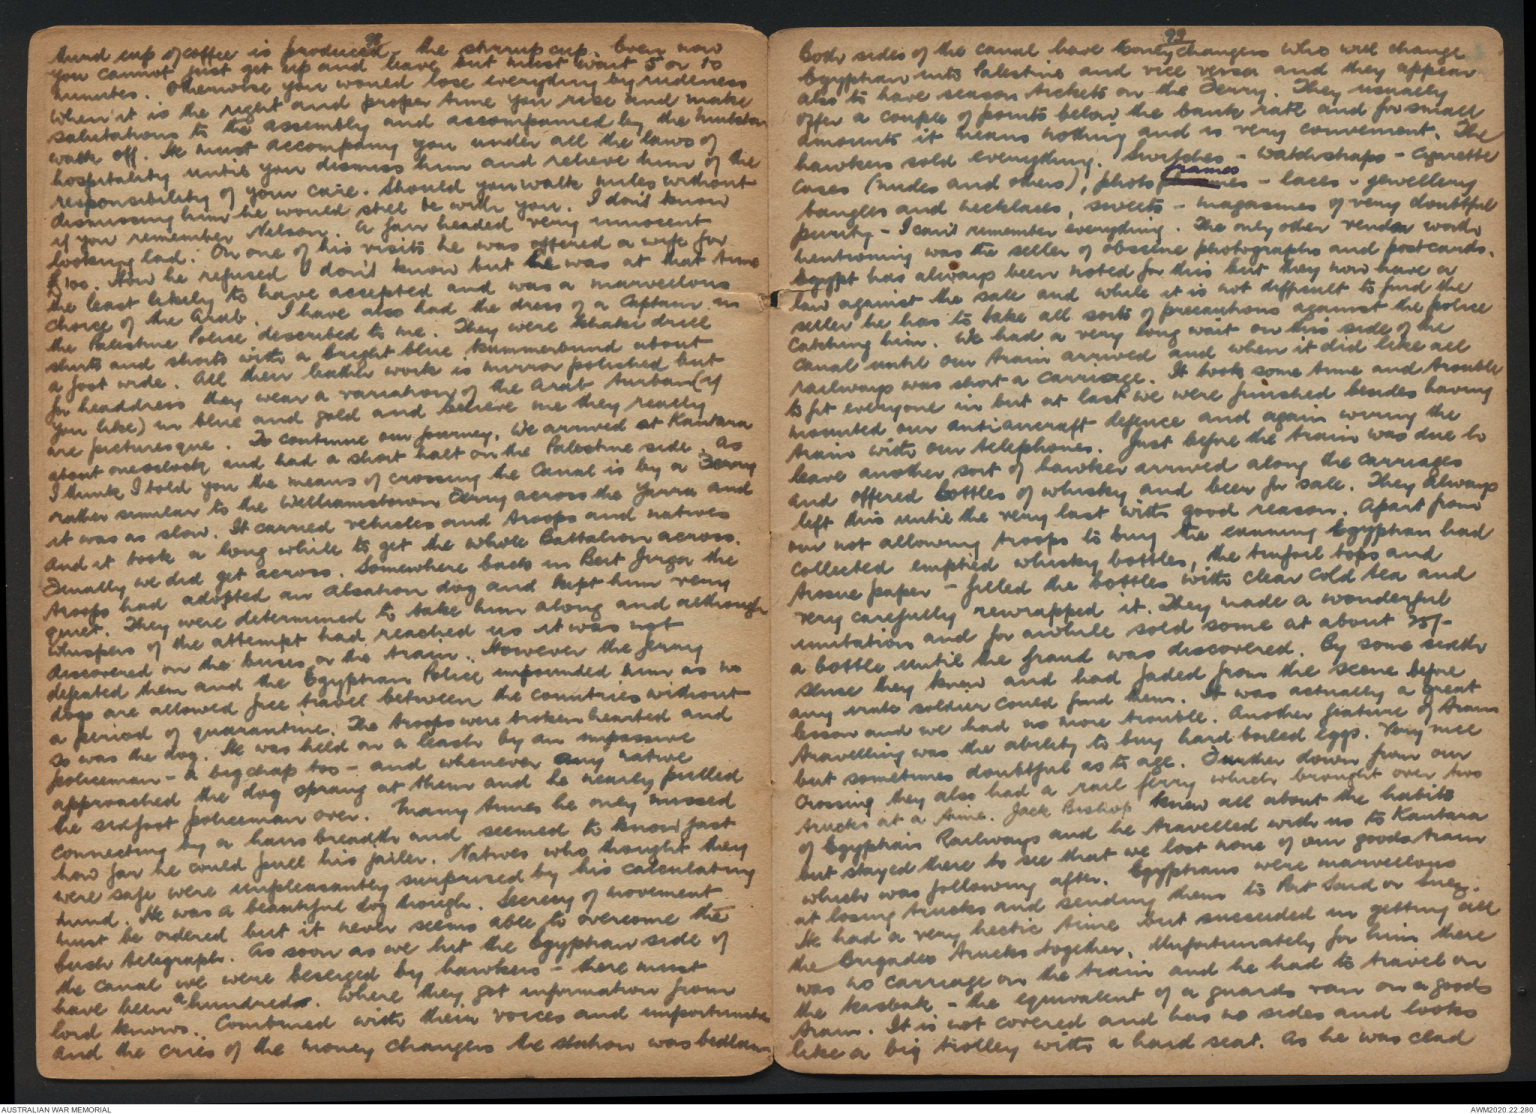 98
third cup of coffee is produced, the stirrup cup. Even now
you cannot just get up and leave but must wait 5 or 10
minutes. Otherwise you would lose everything by rudeness
when it is the right and proper time you rise and make
salutations to the assembly and accompanied by the
walk off. He must accompany you under all the laws of
hospitality until you dismiss him and relieve him of the
responsibility of your care. Should you walk miles without
dismissing him he would still be with you. I don't know
if you remember Nelson. A fair headed very innocent
looking lad. On one of his visits he was offered a wife for
£100. How he refused I don't know but he was at that time
the least likely to have accepted and was a marvellous
choice of the Arab. I have also had the dress of a Captain in
the Palestine Police described to me. They were khaki drill
shirts and shorts with a bright blue kummerbund about
a foot wide. All their leather work is mirror polished but
for headdress they wear a variation of the Arab turban (if
you like) in blue and gold and believe me they really
are picturesque. To continue our journey. We arrived at Kantara
about one o'clock and had a short halt on the Palestine side. As
I think I told you the means of crossing the Canal is by a Ferry
rather similar to the Williamstown Ferry across the Yarra and
it was as slow. It carried vehicles and troops and natives
and it took a long while to get the whole Battalion across.
Finally we did get across. Somewhere back in Beit Jirga the
troops had adopted an alsation dog and kept him very
quiet. They were determined to take him along and although
whispers of the attempt had reached us it was not
discovered on the buses or the train. However the ferry
defeated them and the Egyptian Police impounded him as no
dogs are allowed free travel between the countries without
a period of quarantine. The troops were broken hearted and
so was the dog. He was held on a leash by an impassive
policeman - a big chap too - and whenever any native
approached the dog sprang at them and he nearly pulled
the six foot policeman over. Many times he only missed
connecting by a hairs breadth and seemed to know just
how far he could pull his jailer. Natives who thought they
were safe were unpleasantly surprised by his calculating
mind. He was a beautiful dog though. Secrecy of movement
must be ordered but it never seems able to overcome the
bush telegraph. As soon as we hit the Egyptian side of
the canal we were beseiged by hawkers - there must
have been a hundred. Where they got information from
lord knows. Combined with their voices and
and the cries of the money changers the station was bedlam.
99
Both sides of the canal have money changers who will change
Egyptian into Palestine and vice versa and they appear
also to have season tickets on the Ferry. They usually
offer a couple of points below the bank rate and for small
amounts it means nothing and is very convenient. The
hawkers sold everything. Switches - watchstraps - cigarette
cases (nudes and others), photo frames - laces - jewellery
bangles and necklaces, sweets - magazines of very doubtful
purity - I can't remember everything. The only other vendor worth
mentioning was the seller of obscene photographs and postcards.
Egypt has always been noted for this but they now have a
law against the sale and while it is not difficult to find the
seller he has to take all sorts of precautions against the police
catching him. We had a very long wait on this side of the
Canal until our train arrived and when it did like all
railways was short a carriage. It took some time and trouble
to fit everyone in but at last we were finished besides having
mounted our antiaircraft defence and again wiring the
train with our telephones. Just before the train was due to
leave another sort of hawker arrived along the carriages
and offered bottles of whisky and beer for sale. They always
left this until the very last with good reason. Apart from
our not allowing troops to buy the cunning Egyptian had
collected emptied whisky bottles, the tinfoil tops and
tissue paper - filled the bottles with clear cold tea and
very carefully rewrapped it. They made a wonderful
imitation and for awhile sold some at about 25/-
a bottle until the fraud was discovered. By some sixth
sense they knew and had faded from the scene before
any irate soldier could find them. It was actually a great
lesson and we had no more trouble. Another feature of train
travelling was the ability to buy hard boiled eggs. Very nice
but sometimes doubtful as to age. Further down from our
crossing they also had a rail ferry which brought over two
trucks at a time. Jack Bishop knew all about the habits
of Egyptian Railways and he travelled with us to Kantara
but stayed there to see that we lost none of our goods train
which was following after. Egyptians were marvellous
at losing trucks and sending them to Port Said or Suez.
He had a very hectic time but succeeded in getting all
the Brigades trucks together. Unfortunately for him there
was no carriage on the train and he had to travel on
the kasbak - the equivalent of a guards van on a goods
train. It is not covered and has no sides and looks
like a big trolley with a hard seat. As he was clad
AUSTRALIAN WAR MEMORIAL
AWM2020.22.280